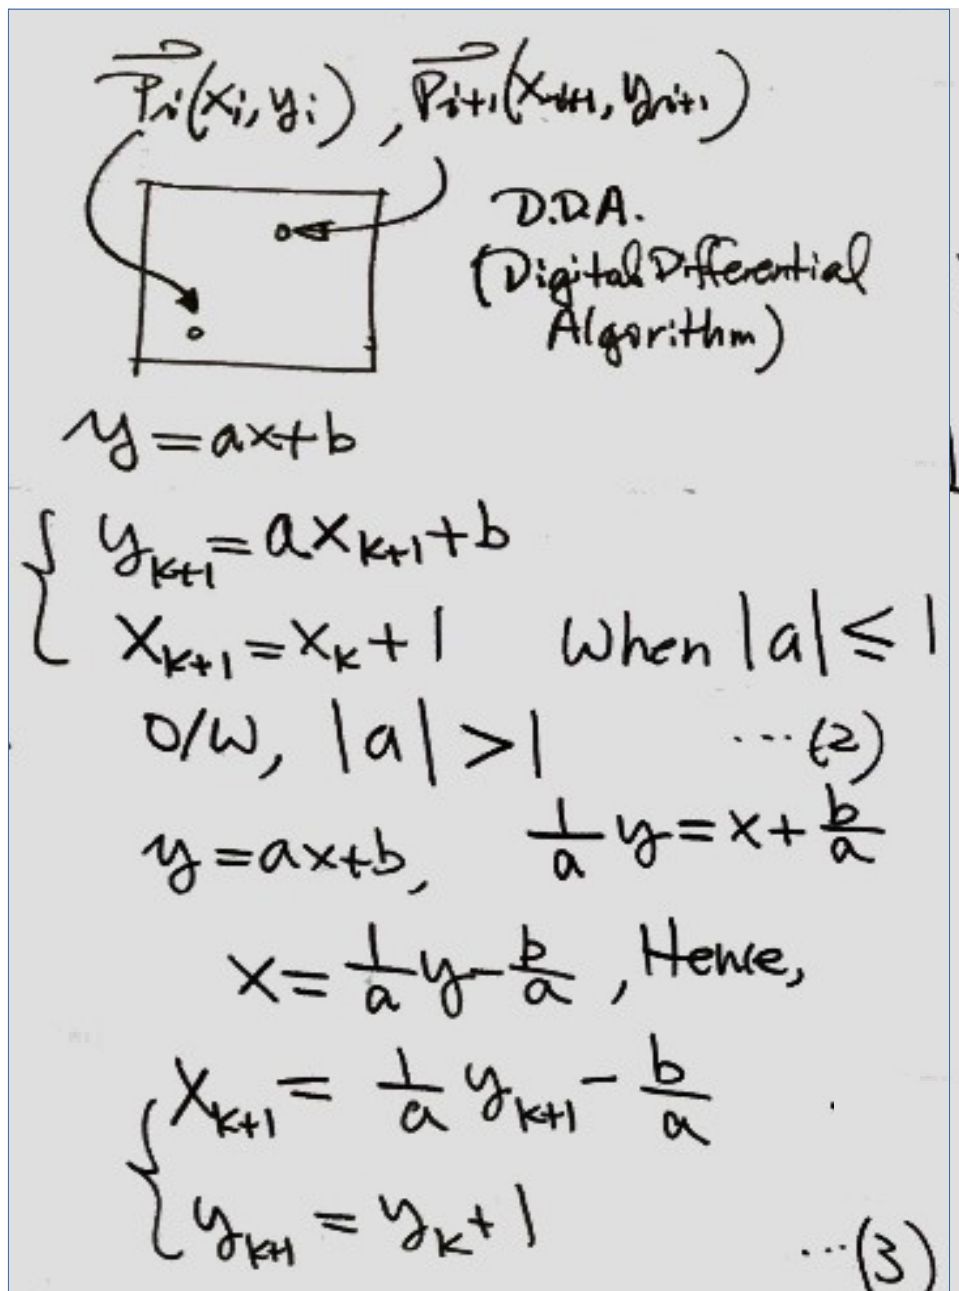 P⃗i(xi, yi), P⃗i+1(xi+1, yi+1)
D.D.A.
(Digital Differential
Algorithm)
y = ax+b
{ y_{k+1} = ax_{k+1}+b
x_{k+1} = x_k + 1 When |a| ≤ 1
O/W, |a| > 1 ...(2)
y = ax+b, 1/a y = x + b/a
x = 1/a y - b/a, Hence,
{ x_{k+1} = 1/a y_{k+1} - b/a
y_{k+1} = y_k + 1
...(3)